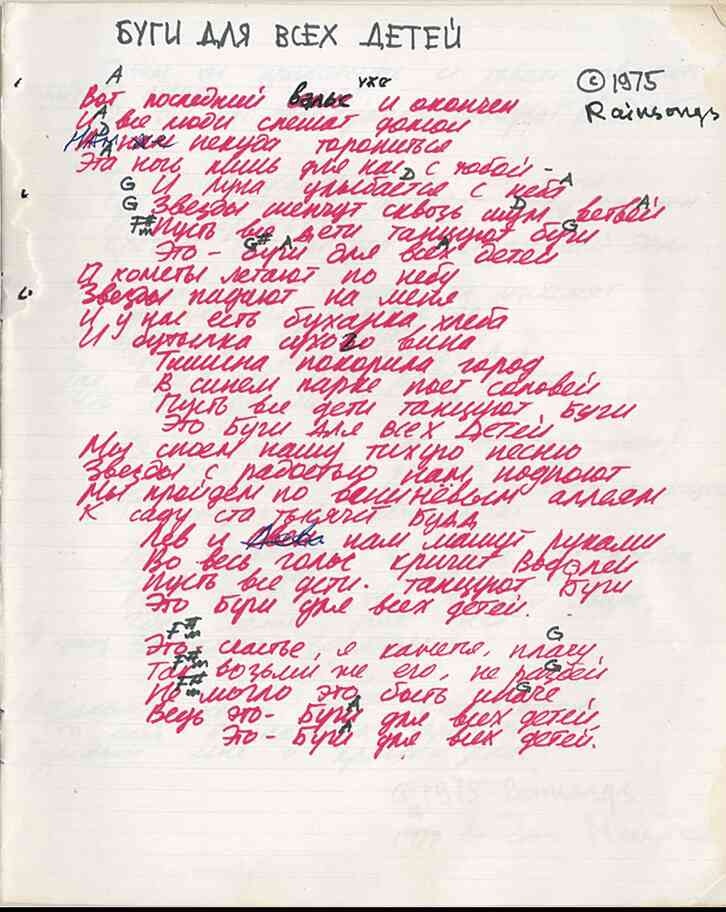 БУГИ ДЛЯ ВСЕХ ДЕТЕЙ
© 1975
Rainsongs
A
уже
Вот последний вальс и окончен
A
И все люди спешат домой
D
Нам же некуда торопиться
A
Эта ночь лишь для нас с тобой -
G D A
И луна улыбается с неба
G D A
Звезды шепчут сквозь шум ветвей
F#m G
Пусть все дети танцуют буги
G# A A
Это - буги для всех детей
И кометы летают по небу
Звезды падают на меня
И у нас есть буханка хлеба
И бутылка сухого вина
Тишина покорила город
В синем парке поет соловей
Пусть все дети танцуют Буги
Это Буги Для Всех Детей
Мы споем нашу тихую песню
Звезды с радостью нам подпоют
Мы пройдем по аллеям
К саду ста тысяч Будд
Лев и нам машут руками
Во весь голос кричит Водолей
Пусть все дети. танцуют Буги
Это Буги для всех детей.
F#m G
Это счастье, я кажется, плачу,
F#m G
Так возьми же его, не разбей
F#m G
Не могло это быть иначе
A
Ведь это - Буги для всех детей
A
Это - Буги для всех детей.